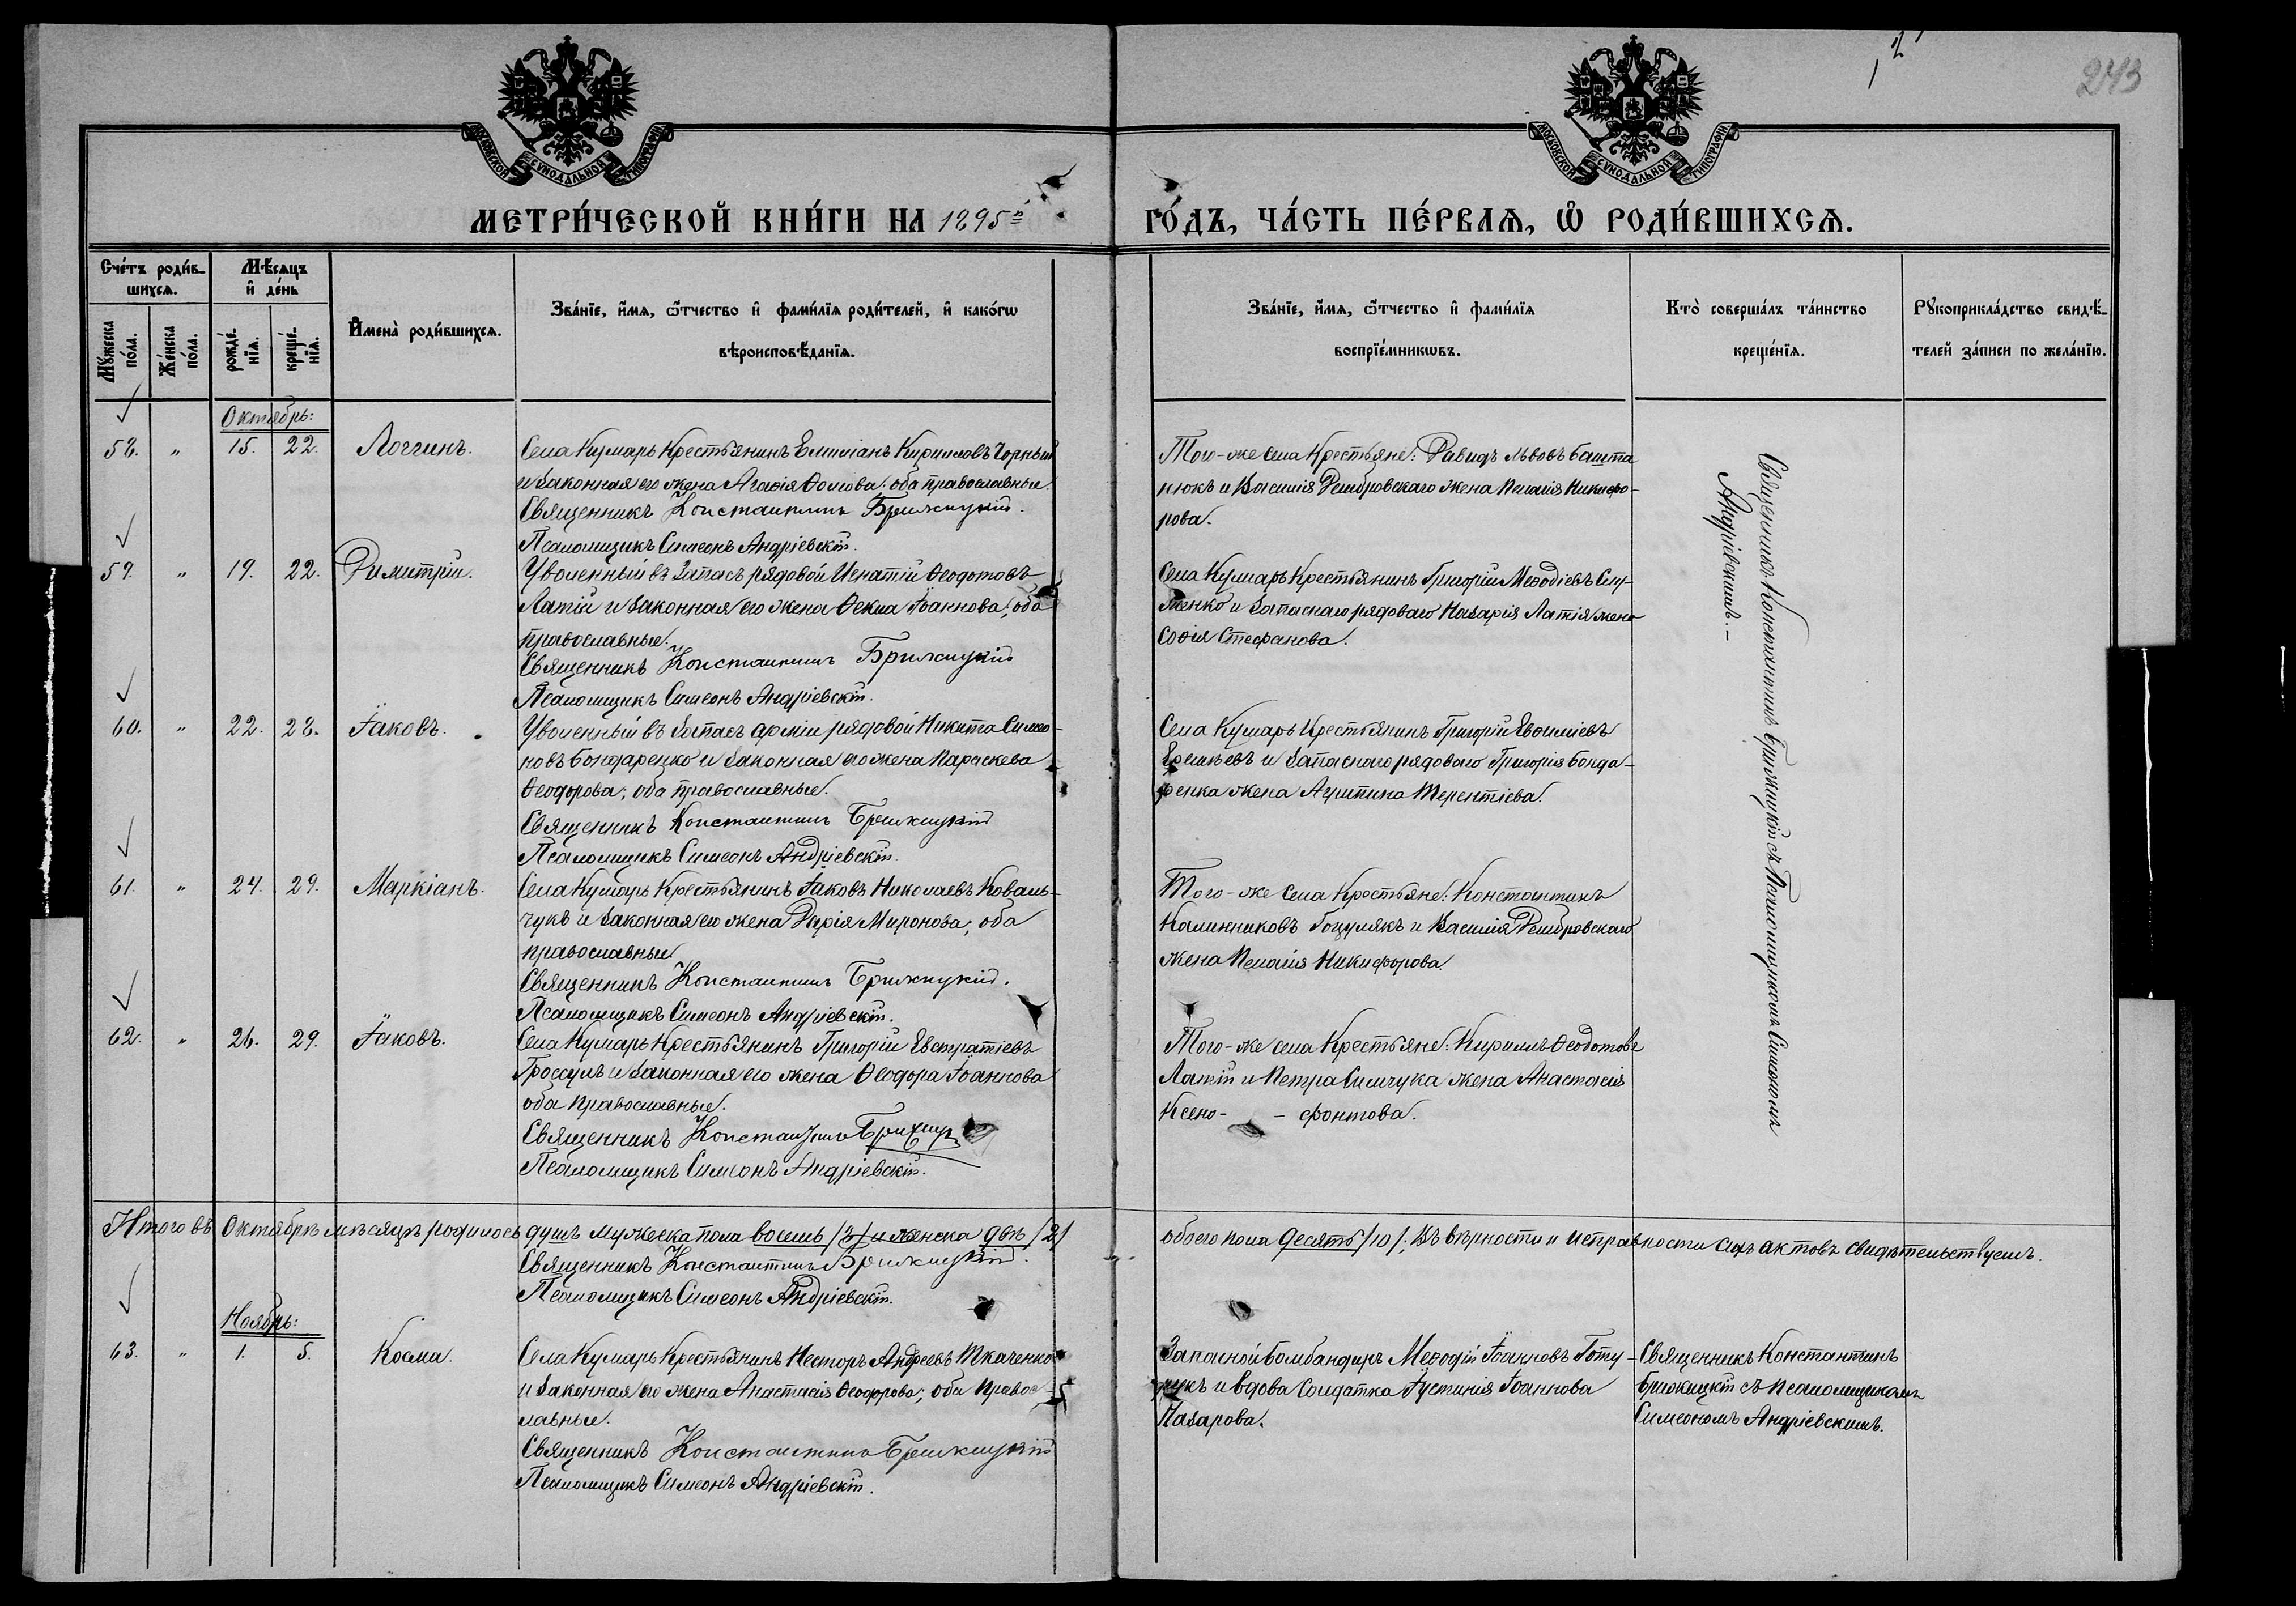 243
МОСКОВСКОЙ СѴНОДАЛЬНОЙ ТИПОГРАФІИ
МОСКОВСКОЙ СѴНОДАЛЬНОЙ ТИПОГРАФІИ
МЕТРИ́ЧЕСКОЙ КНИ́ГИ НА 1895й ГО́ДЪ, ЧА́СТЬ ПЕ́РВАѦ, Ѽ РОДИ́ВШИХСѦ.
Сче́тъ роди́в-
шихсѧ.
Мѣ́сѧцъ
и҆ де́нь
Мꙋ́жеска
по́ла.
Же́нска
по́ла.
рожде́-
нїѧ.
креще́-
нїѧ.
И҆мена̀ роди́вшихсѧ.
Зва́нїе, и҆́мѧ, ѻ҆́тчество и҆ фами́лїѧ роди́телей, и҆ како́гѡ
вѣроисповѣ́данїѧ.
Зва́нїе, и҆́мѧ, ѻ҆́тчество и҆ фами́лїѧ
воспрїе́мникѡвъ.
Кто̀ соверша́лъ та́инство
креще́нїѧ.
Рꙋкоприкла́дство свидѣ́-
телей за́писи по жела́нїю.
Октябрь:
58. " 15. 22. Логгинъ.
Села Кумарь Крестьянинъ Емиліанъ Кирилловъ Чорный
и законная его жена Агафія Фомова; оба православные.
Священникъ Константинъ Брижицкій.
Псаломщикъ Симеонъ Андріевскій.
Того-же села Крестьяне: Давидъ Львовъ Башта
нюкъ и Василія Домбровскаго жена Пелагія Никифо-
рова.
Священникъ Константинъ Брижицкій съ Псаломщикомъ Симеономъ
Андріевскимъ.-
59. " 19. 22. Димитрій.
Уволенный въ запасъ рядовой Игнатій Ѳеодотовъ
Латій и законная его жена Ѳекла Іоаннова; оба
православные.
Священникъ Константинъ Брижицкій
Псаломщикъ Симеонъ Андріевскій.
Села Кумарь Крестьянинъ Григорій Меѳодіевъ Слу-
женко и запаснаго рядоваго Назарія Латія жена
Софія Стефанова.
60. " 22. 28. Іаковъ.
Уволенный въ запасъ арміи рядовой Никита Симео-
новъ Бондаренко и законная его жена Параскева
Ѳеодорова; оба православные.
Священникъ Константинъ Брижицкій
Псаломщикъ Симеонъ Андріевскій.
Села Кумарь Крестьянинъ Григорій Евѳиміевъ
и запаснаго рядоваго Григорія Бонда-
ренка жена Агрипина Терентіева.
61. " 24. 29. Маркіанъ.
Села Кумарь Крестьянинъ Іаковъ Николаевъ Коваль-
чукъ и законная его жена Дарія Миронова; оба
православные.
Священникъ Константинъ Брижицкій.
Псаломщикъ Симеонъ Андріевскій.
Того-же села Крестьяне: Константинъ
Калинниковъ Гоцулякъ и Василія Домбровскаго
жена Пелагія Никифорова.
62. " 26. 29. Іаковъ.
Села Кумарь Крестьянинъ Григорій Евстратіевъ
Гроссулъ и законная его жена Ѳеодора Іоаннова
оба православные.
Священникъ Константинъ
Псаломщикъ Симеонъ Андріевскій.
Того-же села Крестьяне: Кириллъ Ѳеодотовъ
Латій и Петра Симчука жена Анастасія
Ксено- - фонтова.
Итого въ Октябрѣ мѣсяцѣ родилось душъ мужеска пола восемь /8/ и женска двѣ /2/ обоего пола десять /10/; Въ вѣрности и исправности сихъ актовъ свидѣтельствуемъ.
Священникъ Константинъ Брижицкій.
Псаломщикъ Симеонъ Андріевскій.
Ноябрь:
63. " 1. 5. Косма.
Села Кумарь Крестьянинъ Несторъ Андреевъ Ткаченко
и законная его жена Анастасія Ѳеодорова; оба правос-
лавные.
Священникъ Константинъ Брижицкій
Псаломщикъ Симеонъ Андріевскій.
Запасной бомбандиръ Меѳодій Іоанновъ Готу-
рукъ и вдова солдатка Іустинія Іоаннова
Назарова.
Священникъ Константинъ
Брижицкій съ Псаломщикомъ
Симеономъ Андріевскимъ.